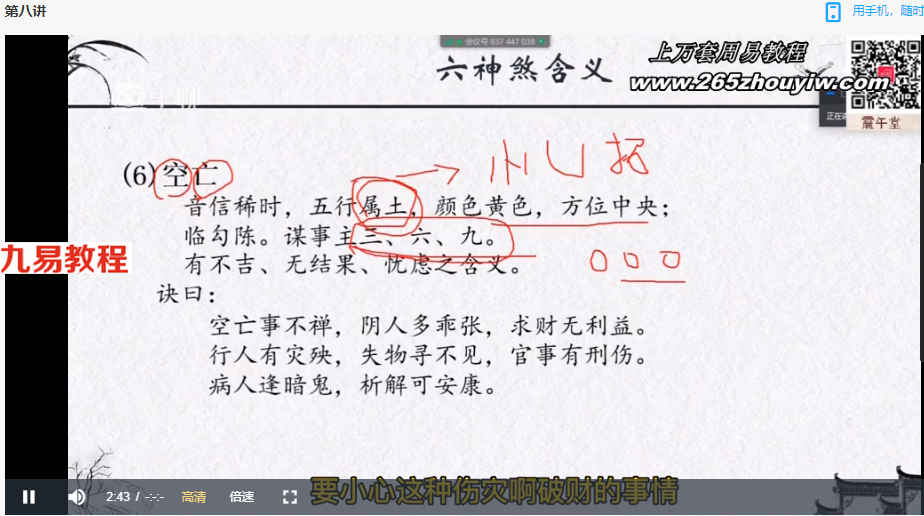 第八讲
用手机，随时
会议号 837 447 038
六神煞含义
上万套周易教程
www.265zhouyiw.com
震午堂
(6)空亡
音信稀时，五行属土，颜色黄色，方位中央；
临勾陈。谋事主三、六、九。
九易教程
有不吉、无结果、忧虑之含义。
诀曰：
空亡事不禅，阴人多乖张，求财无利益。
行人有灾殃，失物寻不见，官事有刑伤。
病人逢暗鬼，析解可安康。
2:43 / -:-:-
高清
倍速
要小心这种伤灾啊破财的事情